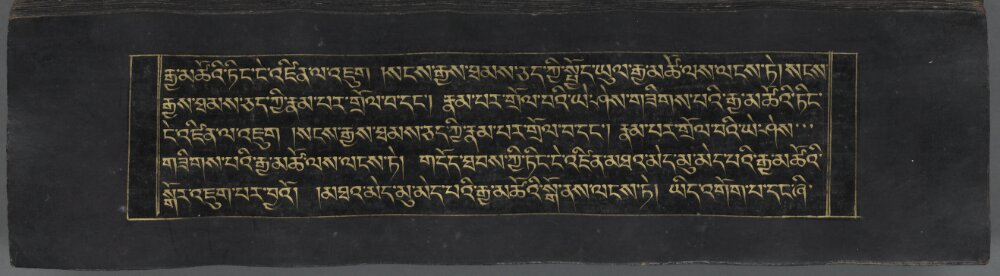 རྒྱ་མཚོའི་ཏིང་ངེ་འཛིན་ལ་འཇུག །སངས་རྒྱས་ཐམས་ཅད་ཀྱི་སྤྱོད་ཡུལ་རྒྱ་མཚོ་ལས་ལངས་ཏེ། སངས་
རྒྱས་ཐམས་ཅད་ཀྱི་རྣམ་པར་གྲོལ་བ་དང༌། རྣམ་པར་གྲོལ་པའི་ཡེ་ཤེས་གཟིགས་པའི་རྒྱ་མཚོའི་ཏིང་
ངེ་འཛིན་ལ་འཇུག །སངས་རྒྱས་ཐམས་ཅད་ཀྱི་རྣམ་པར་གྲོལ་བ་དང༌། རྣམ་པར་གྲོལ་བའི་ཡེ་ཤེས་་་
གཟིགས་པའི་རྒྱ་མཚོ་ལས་ལངས་ཏེ། གདོད་ཐབས་ཀྱི་ཏིང་ངེ་འཛིན་མཐའ་མེད་མུ་མེད་པའི་རྒྱ་མཚོའི་
སྒོར་འཇུག་པར་བྱའོ། །མཐའ་མེད་མུ་མེད་པའི་རྒྱ་མཚོའི་སྒོ་ནས་ལངས་ཏེ། ཡིད་འགོག་པ་དང་ཞི་